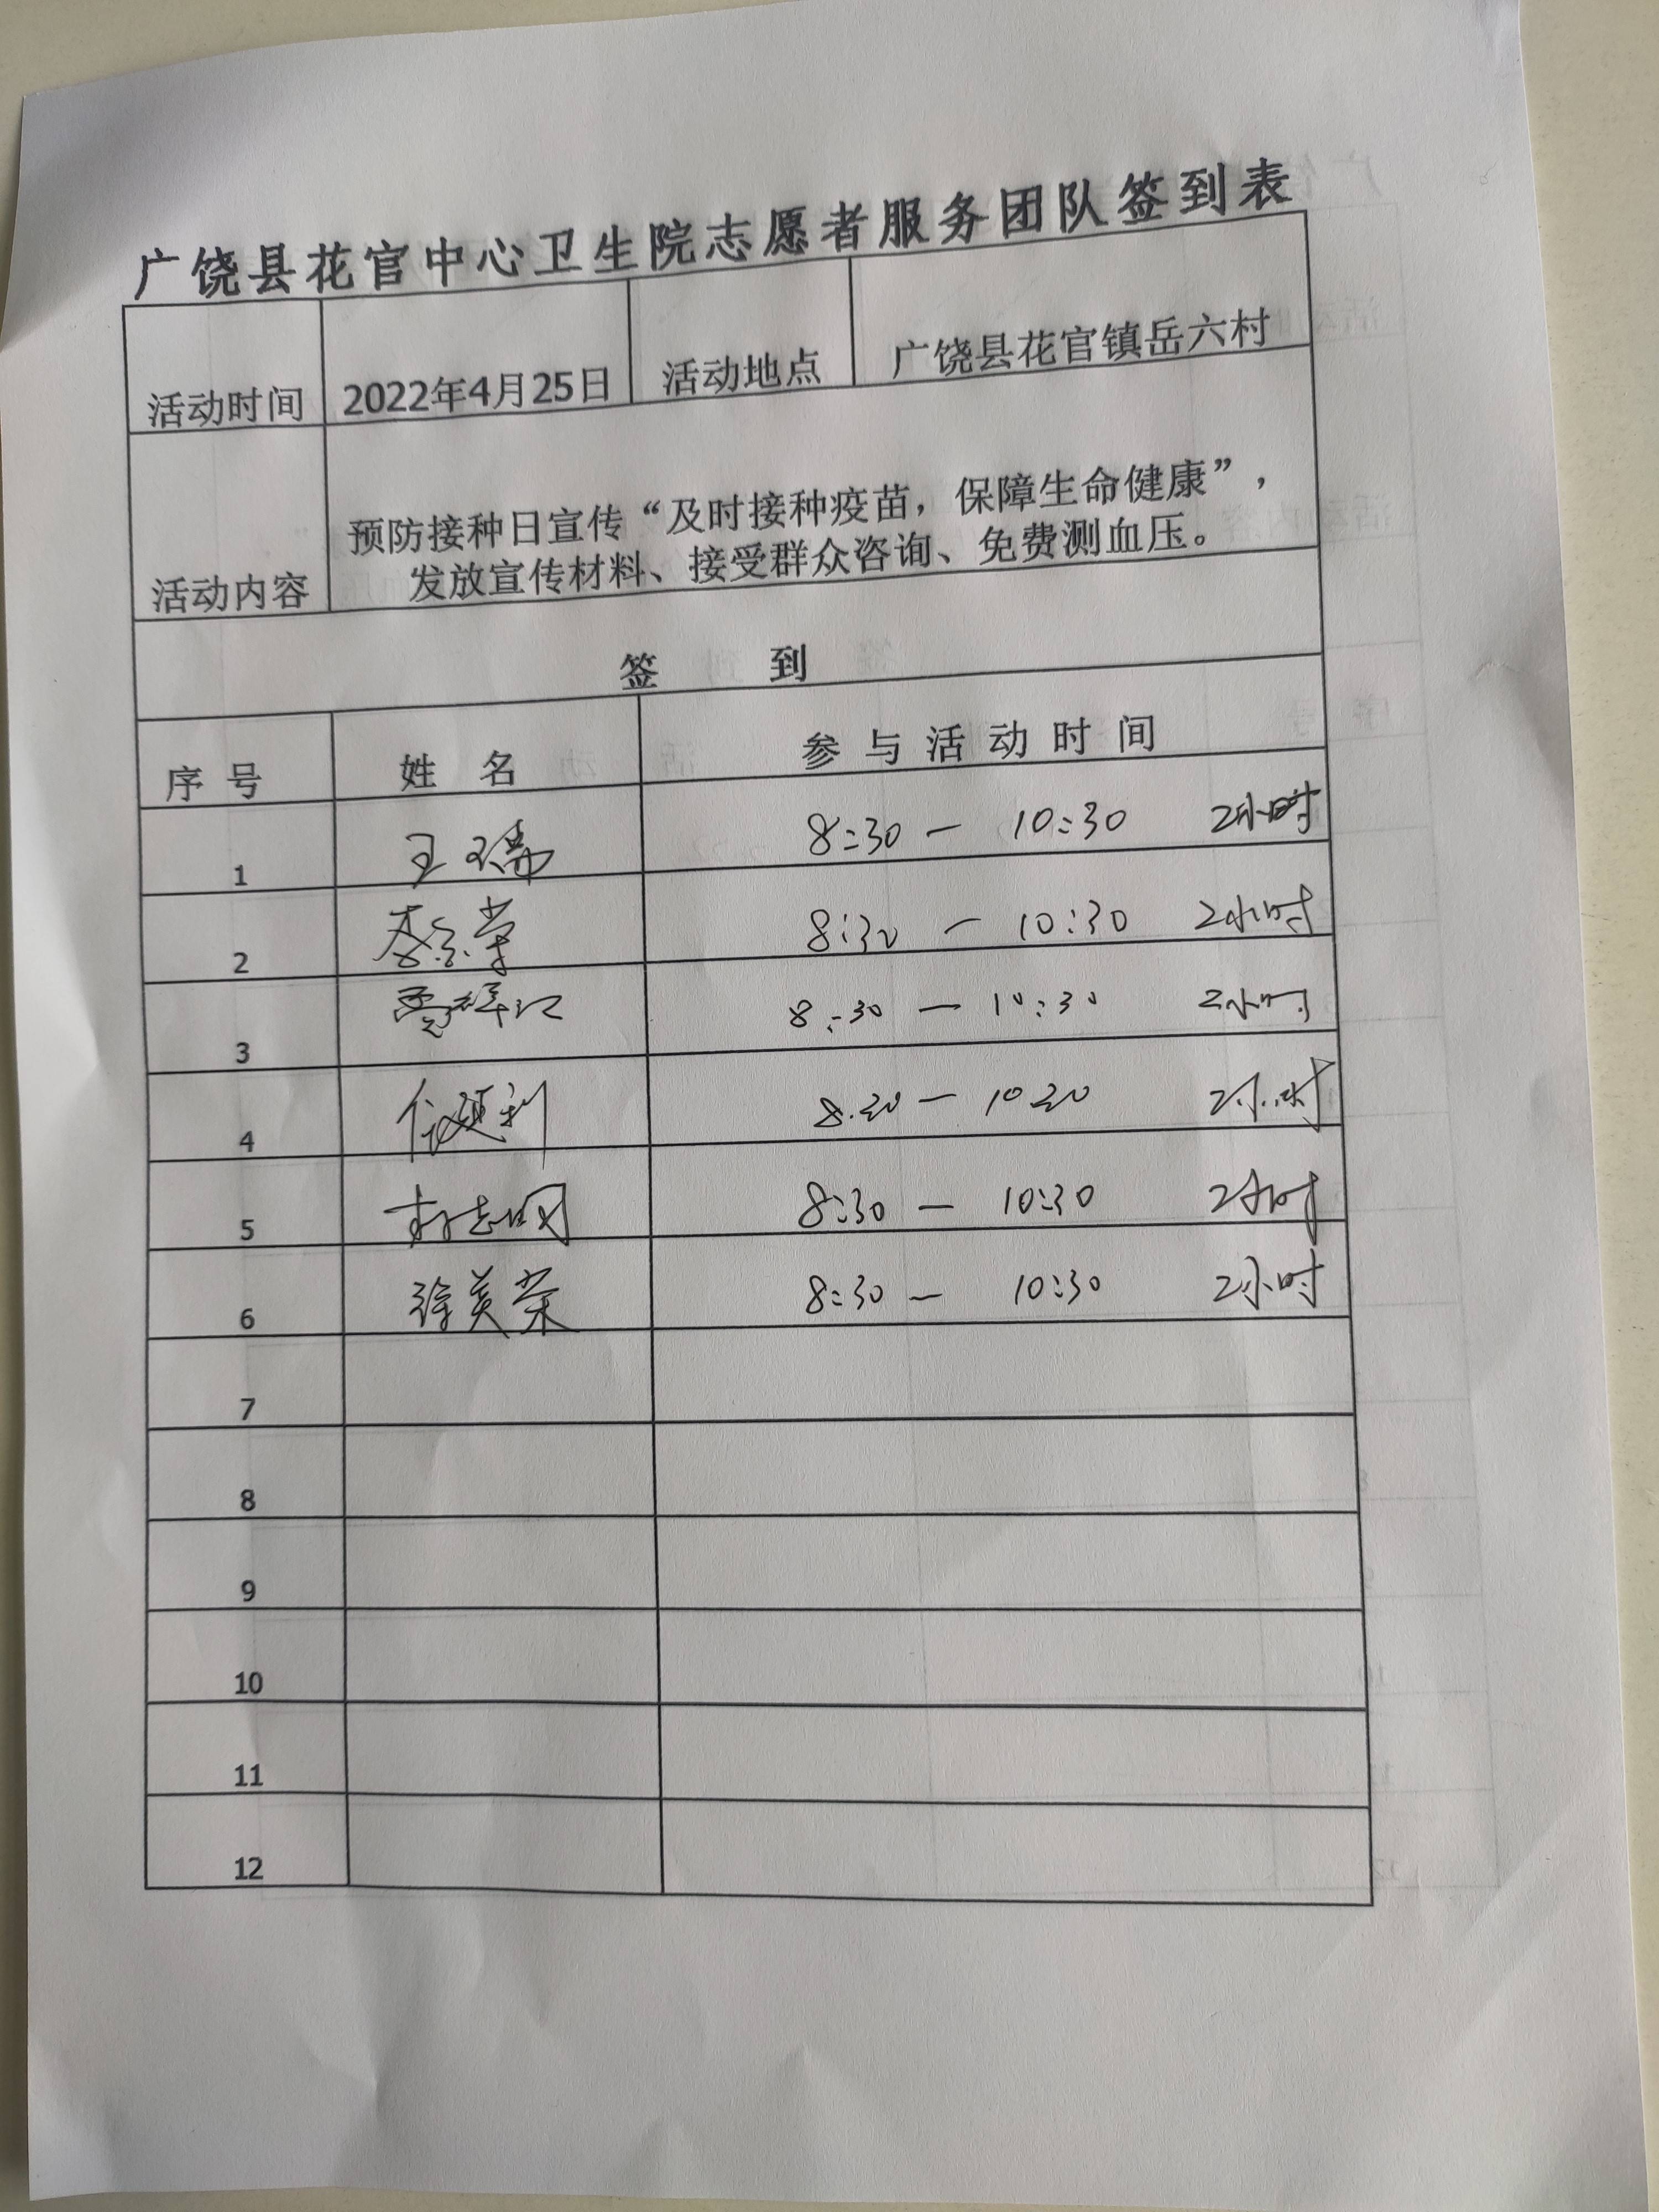 广饶县花官中心卫生院志愿者服务团队签到表
活动时间 2022年4月25日 活动地点 广饶县花官镇岳六村
活动内容 预防接种日宣传“及时接种疫苗，保障生命健康”，
发放宣传材料、接受群众咨询、免费测血压。
签 到
序号 姓名 参与活动时间
1 王瑞 8:30 — 10:30 2小时
2 8:30 — 10:30 2小时
3 8:30 — 10:30 2小时
4 8:30 — 10:30 2小时
5 8:30 — 10:30 2小时
6 徐美荣 8:30 — 10:30 2小时
7
8
9
10
11
12